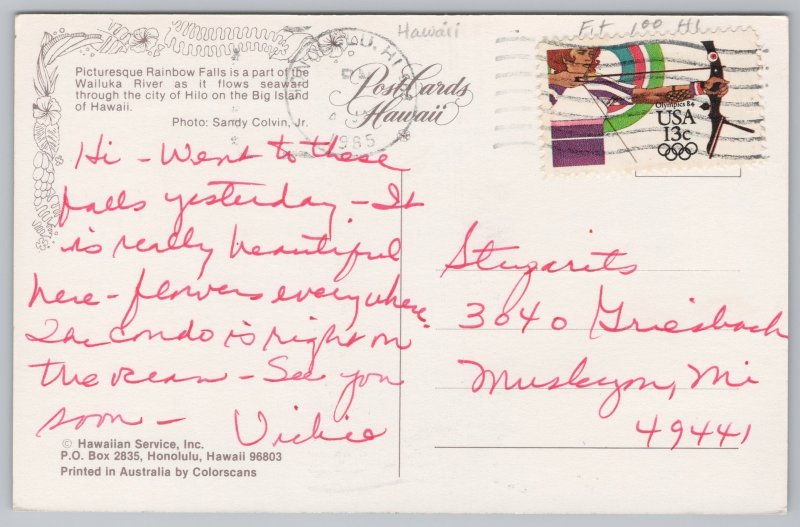 Hawaii
Ft 100 HI
Picturesque Rainbow Falls is a part of the
Wailuka River as it flows seaward
through the city of Hilo on the Big Island
of Hawaii.
Photo: Sandy Colvin, Jr.
HONOLULU, HI
1985
PostCards
Hawaii
Olympics 84
USA
13c
Hi - Went to these
falls yesterday - It
is really beautiful
here - flowers everywhere.
The condo is right on
the ocean - See you
soon -
Vickie
Stuparits
3040 Griesbach
Muskegon, Mi
49441
© Hawaiian Service, Inc.
P.O. Box 2835, Honolulu, Hawaii 96803
Printed in Australia by Colorscans